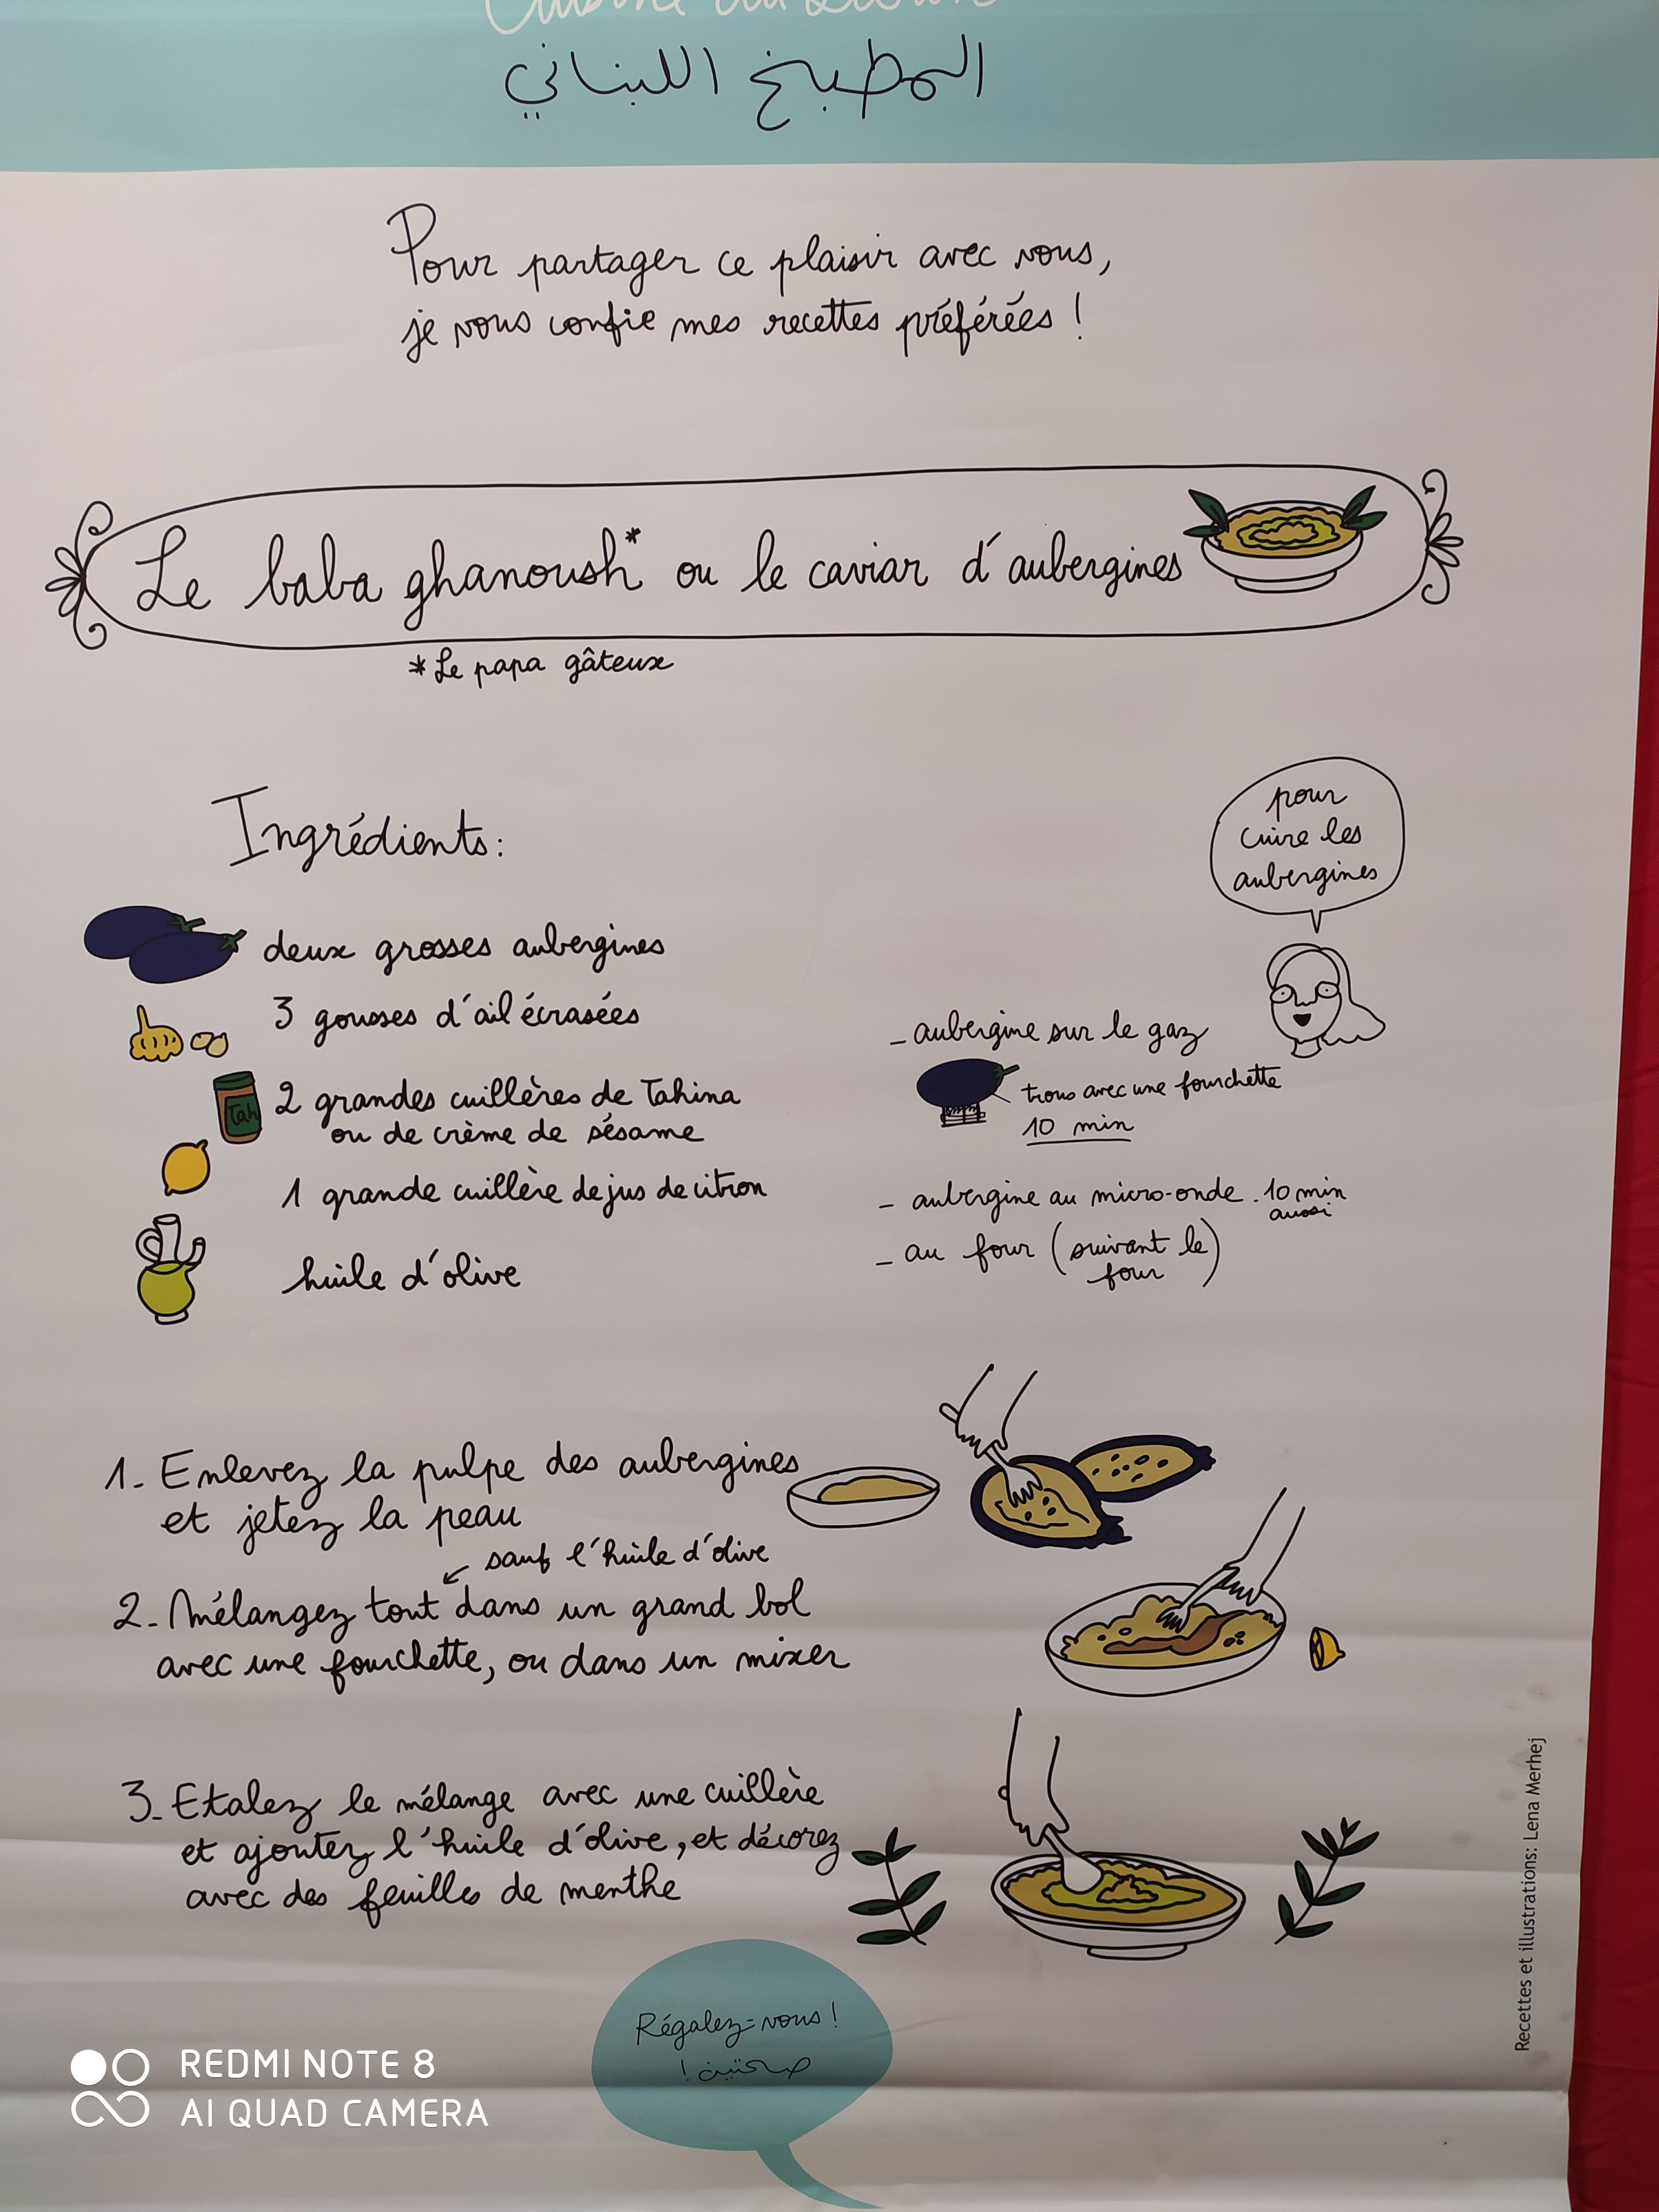 Cuisine du Liban
المطبخ اللبناني
Pour partager ce plaisir avec vous,
je vous confie mes recettes préférées !
Le baba ghanoush* ou le caviar d'aubergines
*Le papa gâteux
Ingrédients :
deux grosses aubergines
3 gousses d'ail écrasées
Tah
2 grandes cuillères de Tahina
ou de crème de sésame
1 grande cuillère de jus de citron
huile d'olive
pour
cuire les
aubergines
_ aubergine sur le gaz
trous avec une fourchette
10 min
_ aubergine au micro-onde . 10 min
aussi
_ au four (suivant le
four)
1_ Enlevez la pulpe des aubergines
et jetez la peau
sauf l'huile d'olive
2_ Mélangez tout dans un grand bol
avec une fourchette, ou dans un mixer
3_ Etalez le mélange avec une cuillère
et ajoutez l'huile d'olive, et décorez
avec des feuilles de menthe
Régalez-vous !
صحتين !
Recettes et illustrations: Lena Merhej
REDMI NOTE 8
AI QUAD CAMERA